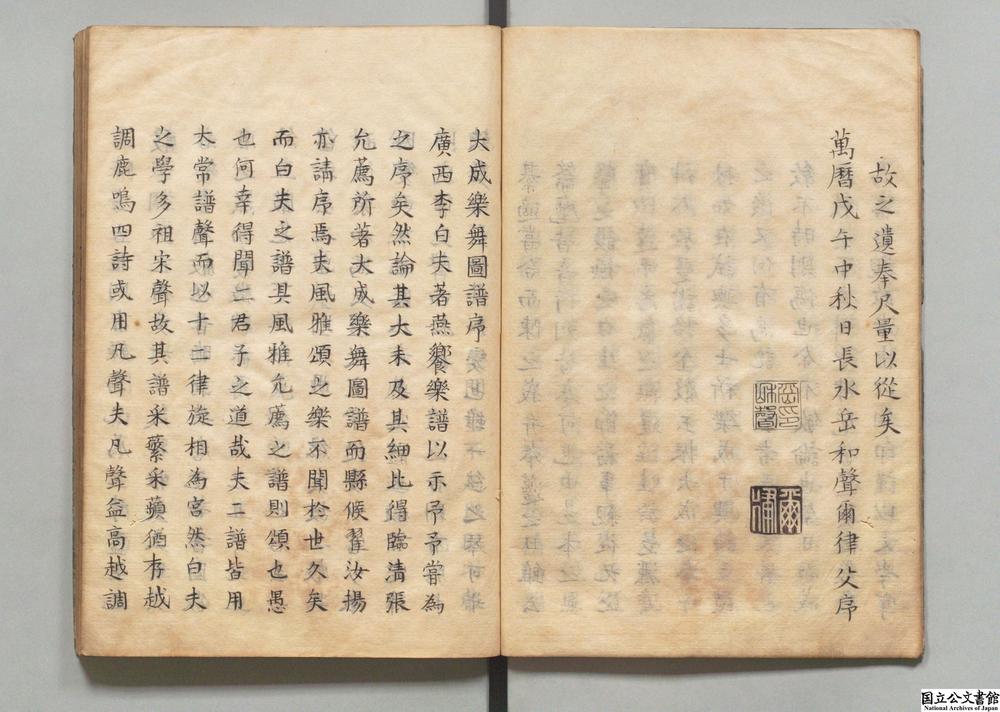 故之遺奉尺量以從矣
萬曆戊午中秋日長水岳和聲爾律父序
大成樂舞圖譜序
廣西李白夫著燕饗樂譜以示予予嘗為
之序矣然論其大未及其細比得臨清張
允薦所著大成樂舞圖譜而縣候翟汝揚
亦請序焉夫風雅頌之樂不聞扵世久矣
而白夫之譜具風雅允薦之譜則頌也愚
也何幸得聞二君子之道哉夫二譜皆用
太常譜聲而以十二律旋相為宮然白夫
之學多祖宋聲故其譜采蘩采蘋猶存越
調鹿鳴四詩或用凡聲夫凡聲益高越調
国立公文書館
National Archives of Japan